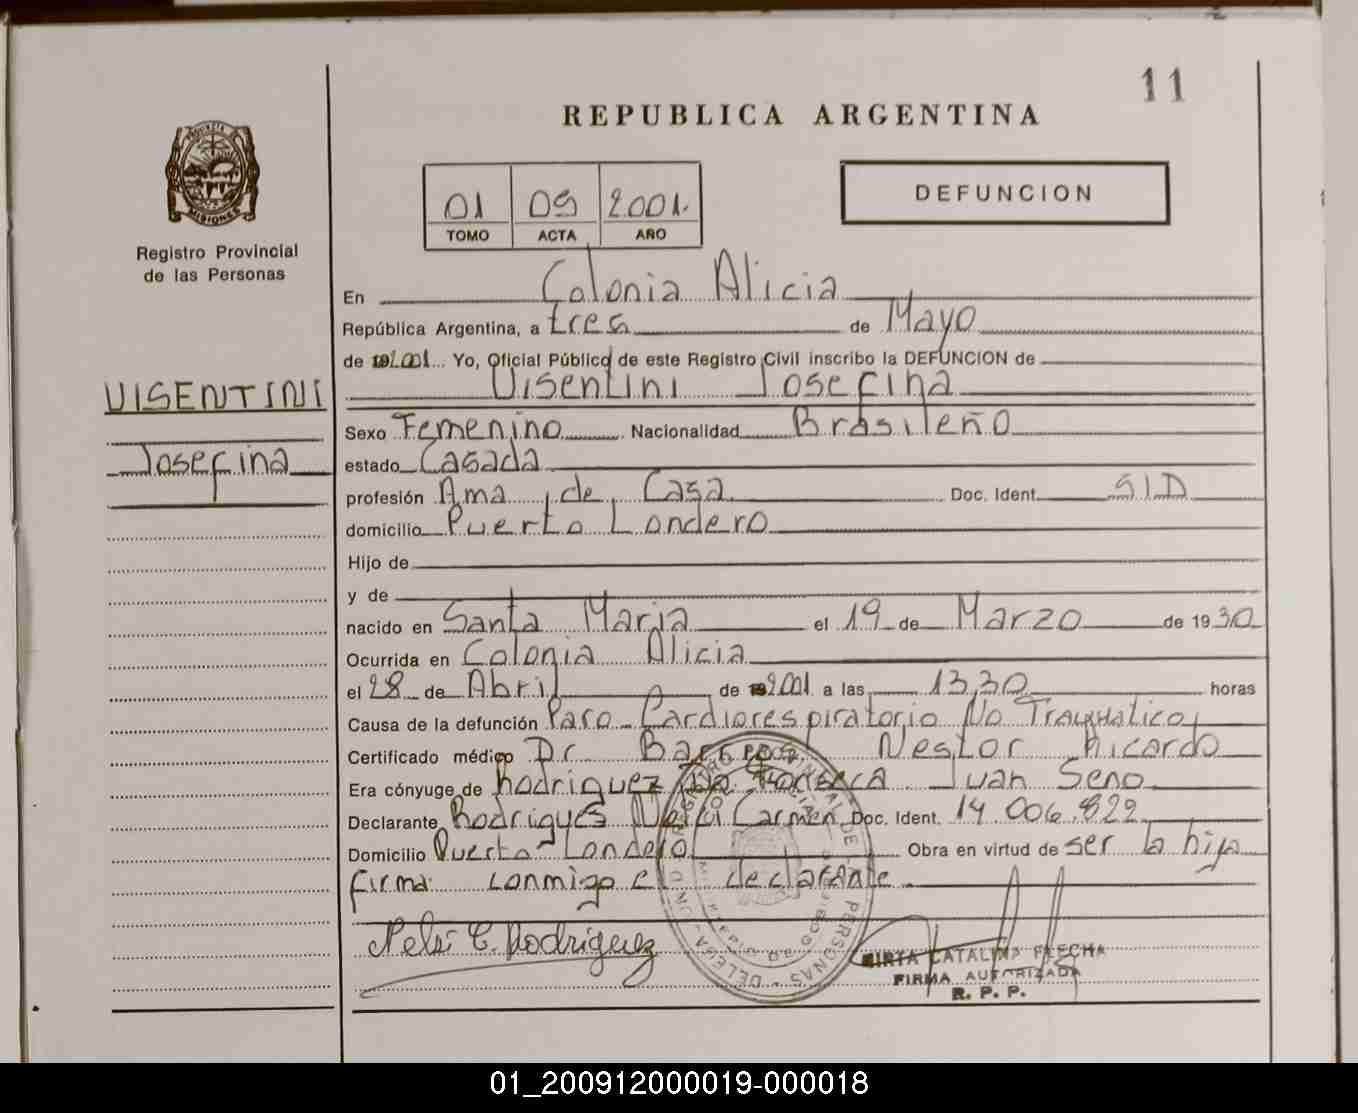 11
REPUBLICA ARGENTINA
PROVINCIA DE
MISIONES
Registro Provincial
de las Personas
01 09 2001.
TOMO ACTA AÑO
DEFUNCION
En Colonia Alicia
República Argentina, a tres de Mayo
de 192.001 Yo, Oficial Público de este Registro Civil inscribo la DEFUNCION de
VISENTINI
Visentini Josefina
Josefina
Sexo Femenino Nacionalidad Brasileño
estado Casada
profesión Ama de Casa Doc. Ident. S/D
domicilio Puerto Londero
Hijo de
y de
nacido en Santa Maria el 19 de Marzo de 1930
Ocurrida en Colonia Alicia
el 28 de Abril de 192.001 a las 13,30 horas
Causa de la defunción Paro Cardiorespiratorio No Traumatico
Certificado médico Dr. Nestor Ricardo
Era cónyuge de Rodriguez Da Fonseca Juan Seno
Declarante Rodrigues Carmen Doc. Ident. 14.006.822
Domicilio Puerto Londero Obra en virtud de ser la hija
firma conmigo el declarante
Nelsi C. Rodriguez
MIRTA CATALINA FLECHA
FIRMA AUTORIZADA
R. P. P.
01_200912000019-000018